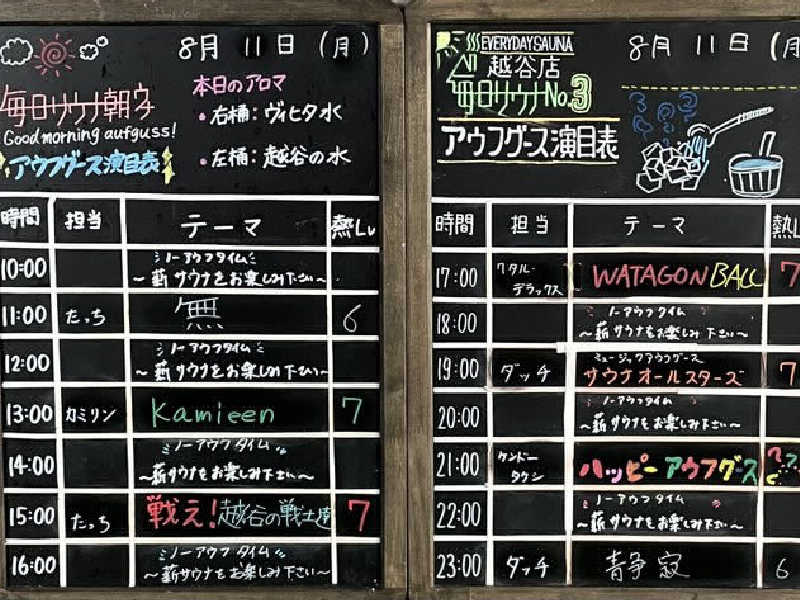 8月 11日 (月)
毎日サウナ朝刊
Good morning aufguss!
アウフグース演目表
本日のアロマ
・右桶：ヴィヒタ水
・左桶：越谷の水
時間 担当 テーマ 熱Lv
10:00 ノーアウフタイム
～薪サウナをお楽しみ下さい～
11:00 たっち 無 6
12:00 ノーアウフタイム
～薪サウナをお楽しみ下さい～
13:00 カミリン Kamieen 7
14:00 ノーアウフタイム
～薪サウナをお楽しみ下さい～
15:00 たっち 戦え!越谷の戦士達 7
16:00 ノーアウフタイム
～薪サウナをお楽しみ下さい～
8月 11日 (月
EVERYDAY SAUNA
越谷店
毎日サウナNo.3
アウフグース演目表
時間 担当 テーマ 熱L
17:00 ワタルー
デラックス WATAGON BALL 7
18:00 ノーアウフタイム
～薪サウナをお楽しみ下さい～
19:00 ダッチ ミュージックアウフグース
サウナオールスターズ 7
20:00 ノーアウフタイム
～薪サウナをお楽しみ下さい～
21:00 ケンドー
タケシ ハッピーアウフグース ??
22:00 ノーアウフタイム
～薪サウナをお楽しみ下さい～
23:00 ダッチ 静寂 6